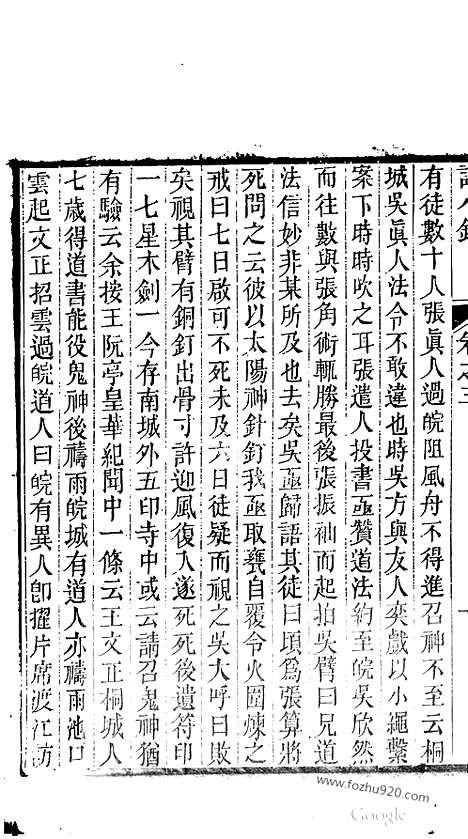 有徒數十人張真人過皖阻風舟不得進召神不至云桐
城吳真人法令不敢違也時吳方與友人奕戲以小繩繫
案下時時吹之耳張遣人投書亟贊道法約至皖吳欣然
而往數與張角術輒勝最後張振袖而起拍吳臂曰兄道
法信妙非某所及也去矣吳亟歸語其徒曰頃為張算將
死問之云彼以太陽神針釘我亟取甕自覆令火圍煉之
戒曰七日啟可不死未及六日徒疑而視之吳大呼曰敗
矣視其臂有銅釘出骨寸許迎風復入遂死死後遺符印
一七星木劍一今存南城外五印寺中或云請召鬼神猶
有驗云余按王阮亭皇華紀聞中一條云王文正桐城人
七歲得道書能役鬼神後禱雨皖城有道人亦禱雨池口
雲起文正招雲過皖道人曰皖有異人卽擢片席渡江訪
www.fozhu920.com
Google